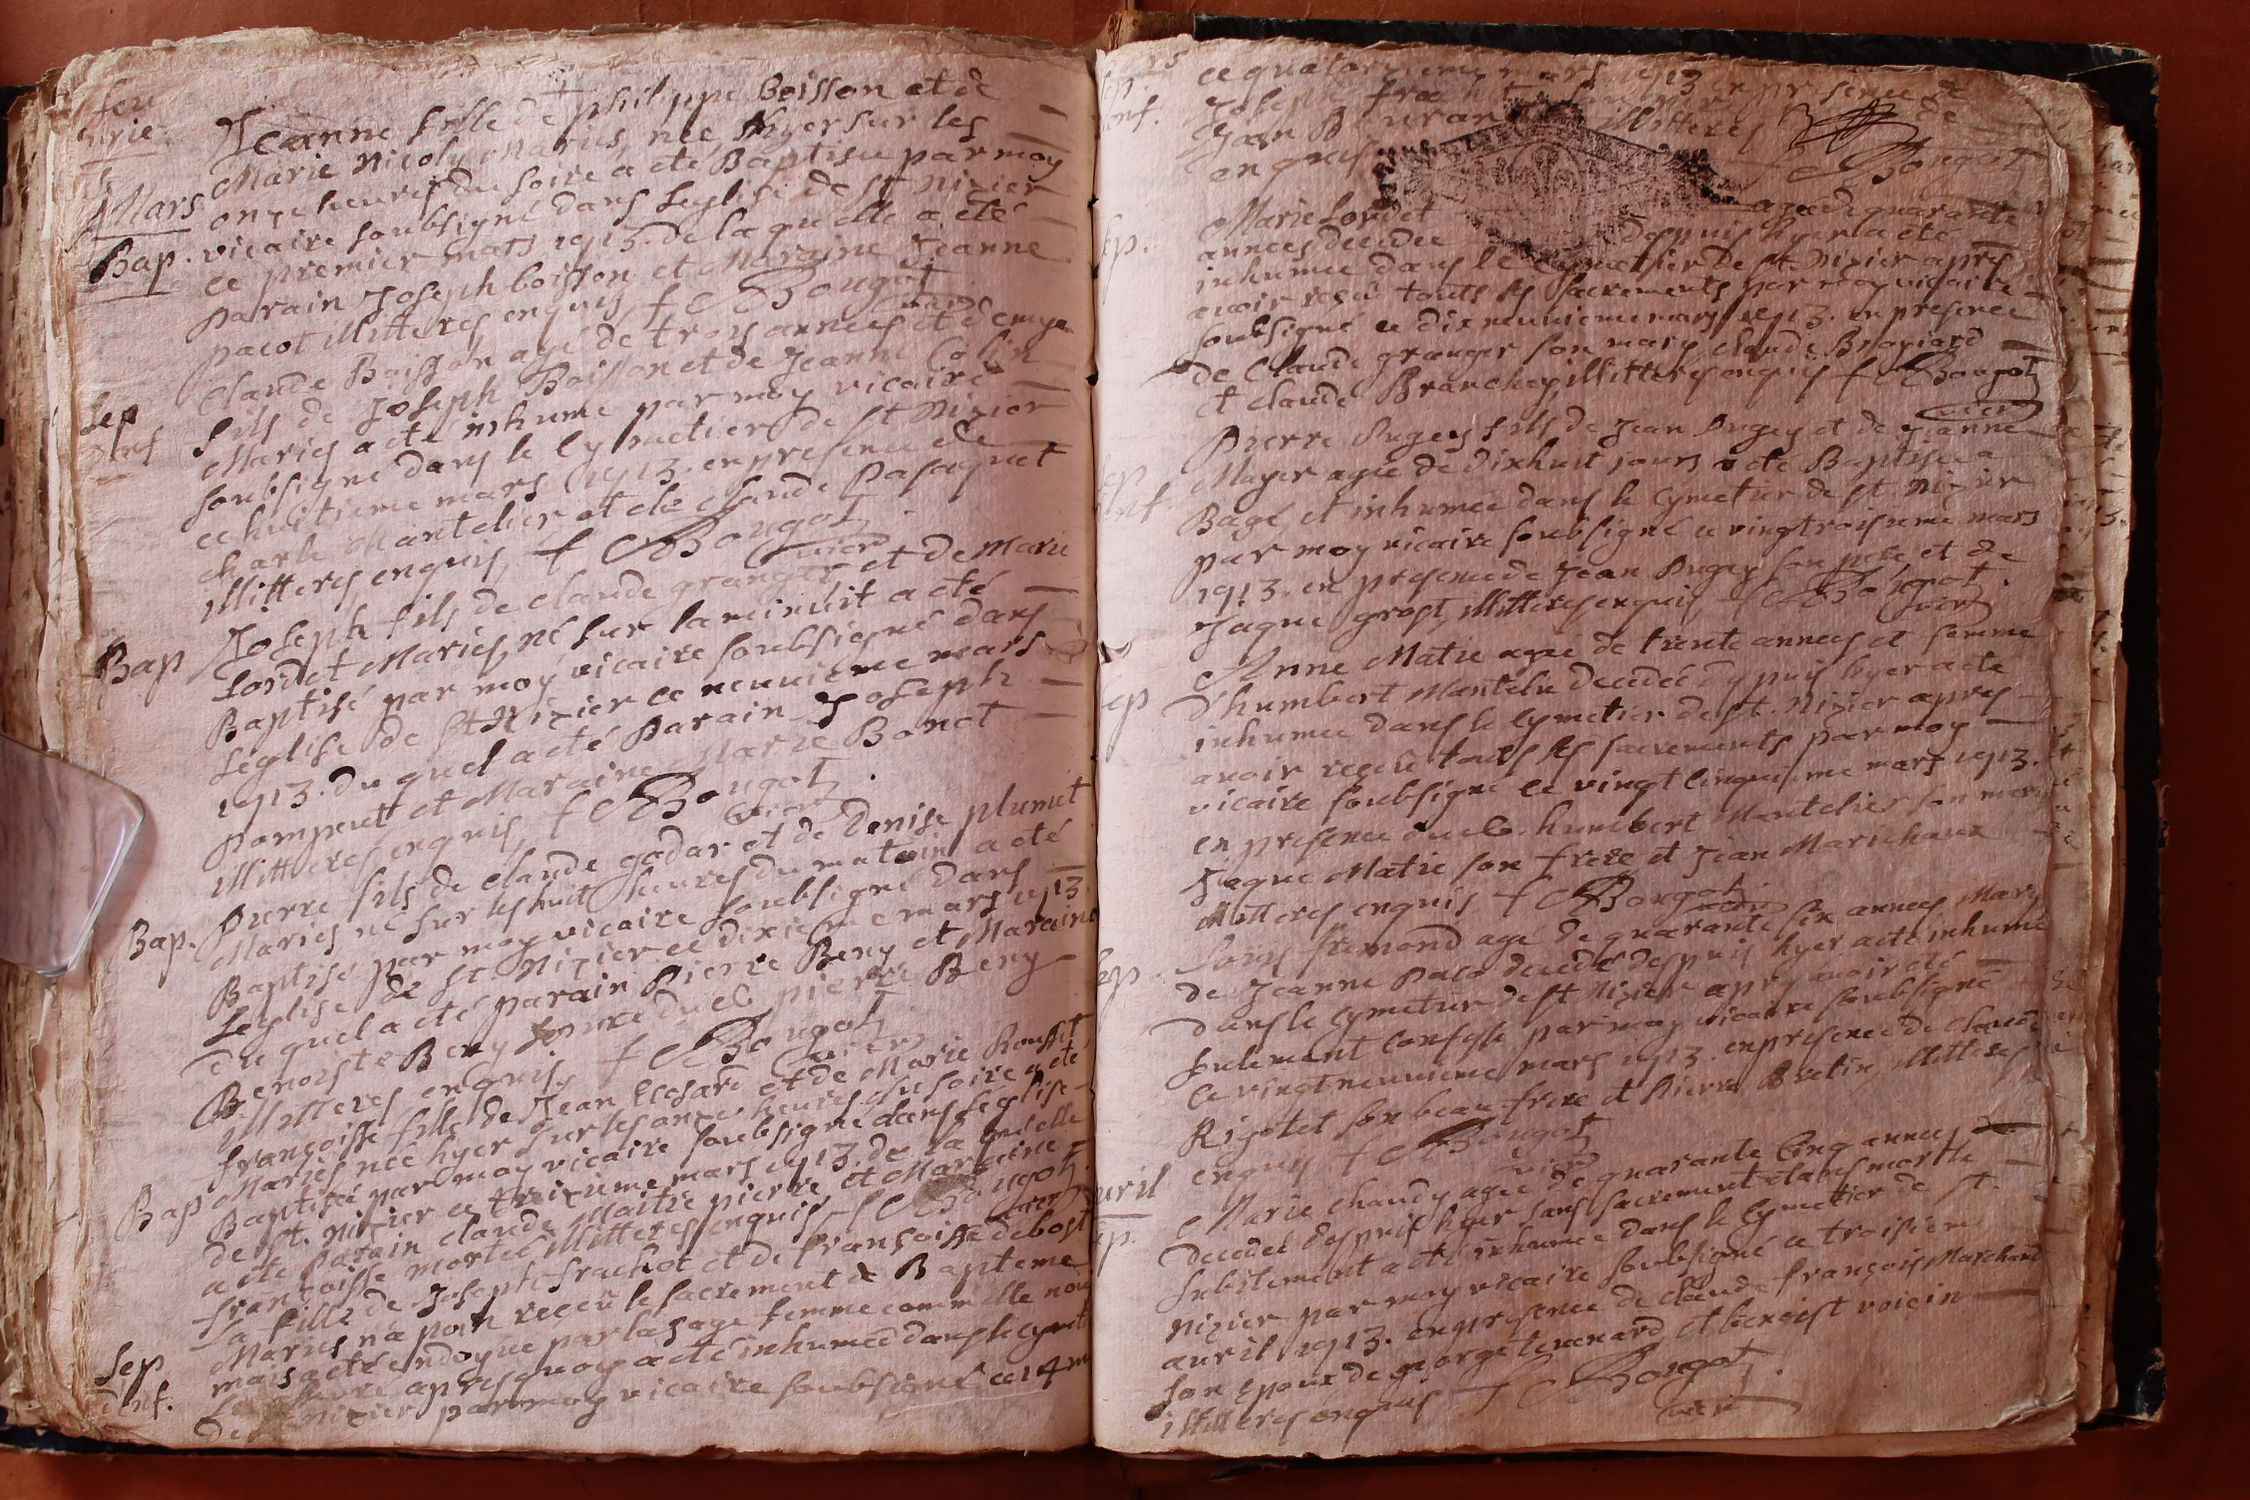 feu
Jeanne fille de philippe Boisson et de
Marie Nicoly Maries, née, hyer sur les
Mars
onze heures du soire a eté Baptisée par moy
Bap. vicaire soubsigné dans Leglise de St Nizier
ce premier mars 1713. de laquelle a eté
parain Joseph boisson et Maraine Jeanne
pacot illitteres enquis, f C Bougot
vicr
Claude Boisson agé de trois années et demye
Sep
fils de Joseph Boisson et de Jeanne Colin
Maries a eté inhumé par moy vicaire
soubsigné dans le Cymetier de St Nizier
ce huitieme mars 1713. en presence de
charle Mantelier et de claude Pasquet
illitteres, enquis, f C Bougot
vicr
Bap
Joseph fils de claude granger et de Marie
Lordet Maries, né sur la minuit a eté
Baptisé par moy vicaire soubsigné dans
Leglise de St Nizier ce neuvieme mars
1713. du quel a eté Parain Joseph
pompeut et Maraine Marie Bonet
illitteres enquis, f C Bougot.
vicr
Bap.
Pierre fils de claude godar et de Denise plumet
Maries né sur les huit heures du matin a eté
Baptisé par moy vicaire soubsigné dans
Leglise de St Nizier ce dixieme mars 1713
du quel a eté parain Pierre Beny et Maraine
Benoiste Beny femme dud. pierre Beny
illitteres enquis, f C Bougot
vicr
françoisse fille de Jean Elosard et de Marie Rousset
Maries née hyer sur les onze heures du soire a eté
Bap
Baptisée par moy vicaire soubsigné dans Leglise
de St. Nizier ce treizieme mars 1713. de la quelle
a eté Parain claude Maitre pierre et Maraine
françoisse mortel illitteres enquis f C Bougot.
vicr
La fille de Joseph frachot et de françoisse debost
Maries n'a point reçeu le sacrement de Bapteme
Sep
d'enf.
mais a eté endoyée par la sage femme comm elle nous
apres quoy a eté inhumée dans le Cymet
de St nizier par moy vicaire soubsigné ce 14 m
ce quatorzieme mars 1713 en presence de
Joseph
Jean illitteres
enquis f C Bougot
Marie Lordet agée de quarante
années decedée depuis hyer a eté
inhumée dans le Cymetier de St. Nizier apres
avoir reçeu touts les sacrements par moy vicaire
soubsigné ce dixneuvieme mars 1713. en presence
de Claude granger son mary claude Broyiard
et claude Branchey illitteres enquis f C Bougot
vicr
Pierre Pugey fils de Jean Pugey et de Jeanne
Mayer agée de dixhuit jours a eté Baptisée a
Bagé et inhumée dans le Cymetier de St. Nizier
par moy vicaire soubsigné ce vingtroisieme mars
1713. en presence de Jean Pugey son pere et de
Jaque grost, illitteres enquis f C Bougot.
vicr
Anne Matie agée de trente années et femme
d'humbert Mantelie decedée depuis hyer a eté
inhumée dans le Cymetier de St. Nizier apres
avoir reçeu touts les sacrements par moy
vicaire soubsigné ce vingt cinquieme mars 1713.
en presence dud. humbert Mantelier son mari
Jaque Matie son frere et Jean Marichaux
illitteres enquis f C Bougot
vicr
Louis fremond agé de quarante six années Mary
de Jeanne Paco decedé depuis hyer a eté inhumé
dans le Cymetier de St Nizier apres avoir eté
seulement confessé par moy vicaire soubsigné
ce vingtneuvieme mars 1713. en presence de claude
Rigotet son beau frere et Pierre Bretin, illitteres
enquis f C Bougot
vicr
avril
Marie chaudy agée de quarante Cinq années
decedée depuis hyer sans sacrement etans morte
subitement a eté inhumée dans le Cymetier de St.
nizier par moy vicaire soubsigné ce troisieme
avril 1713. en presence de claude françois Marchand
son epoux de george tenard et benoist voicin
illitteres enquis f C Bougot.
vicr